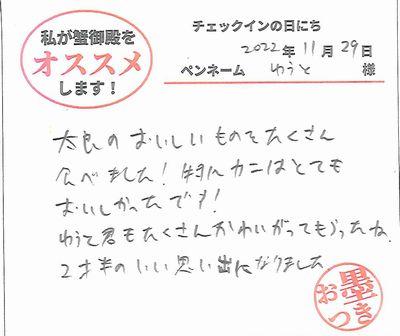 私が蟹御殿を
オススメ
します！
チェックインの日にち
2022年11月29日
ペンネーム ゆうと 様
太良のおいしいものをたくさん
食べました！特にカニはとても
おいしかったです！
ゆうと君もたくさんかわいがってもらったね。
2才半のいい思い出になりました
お墨つき